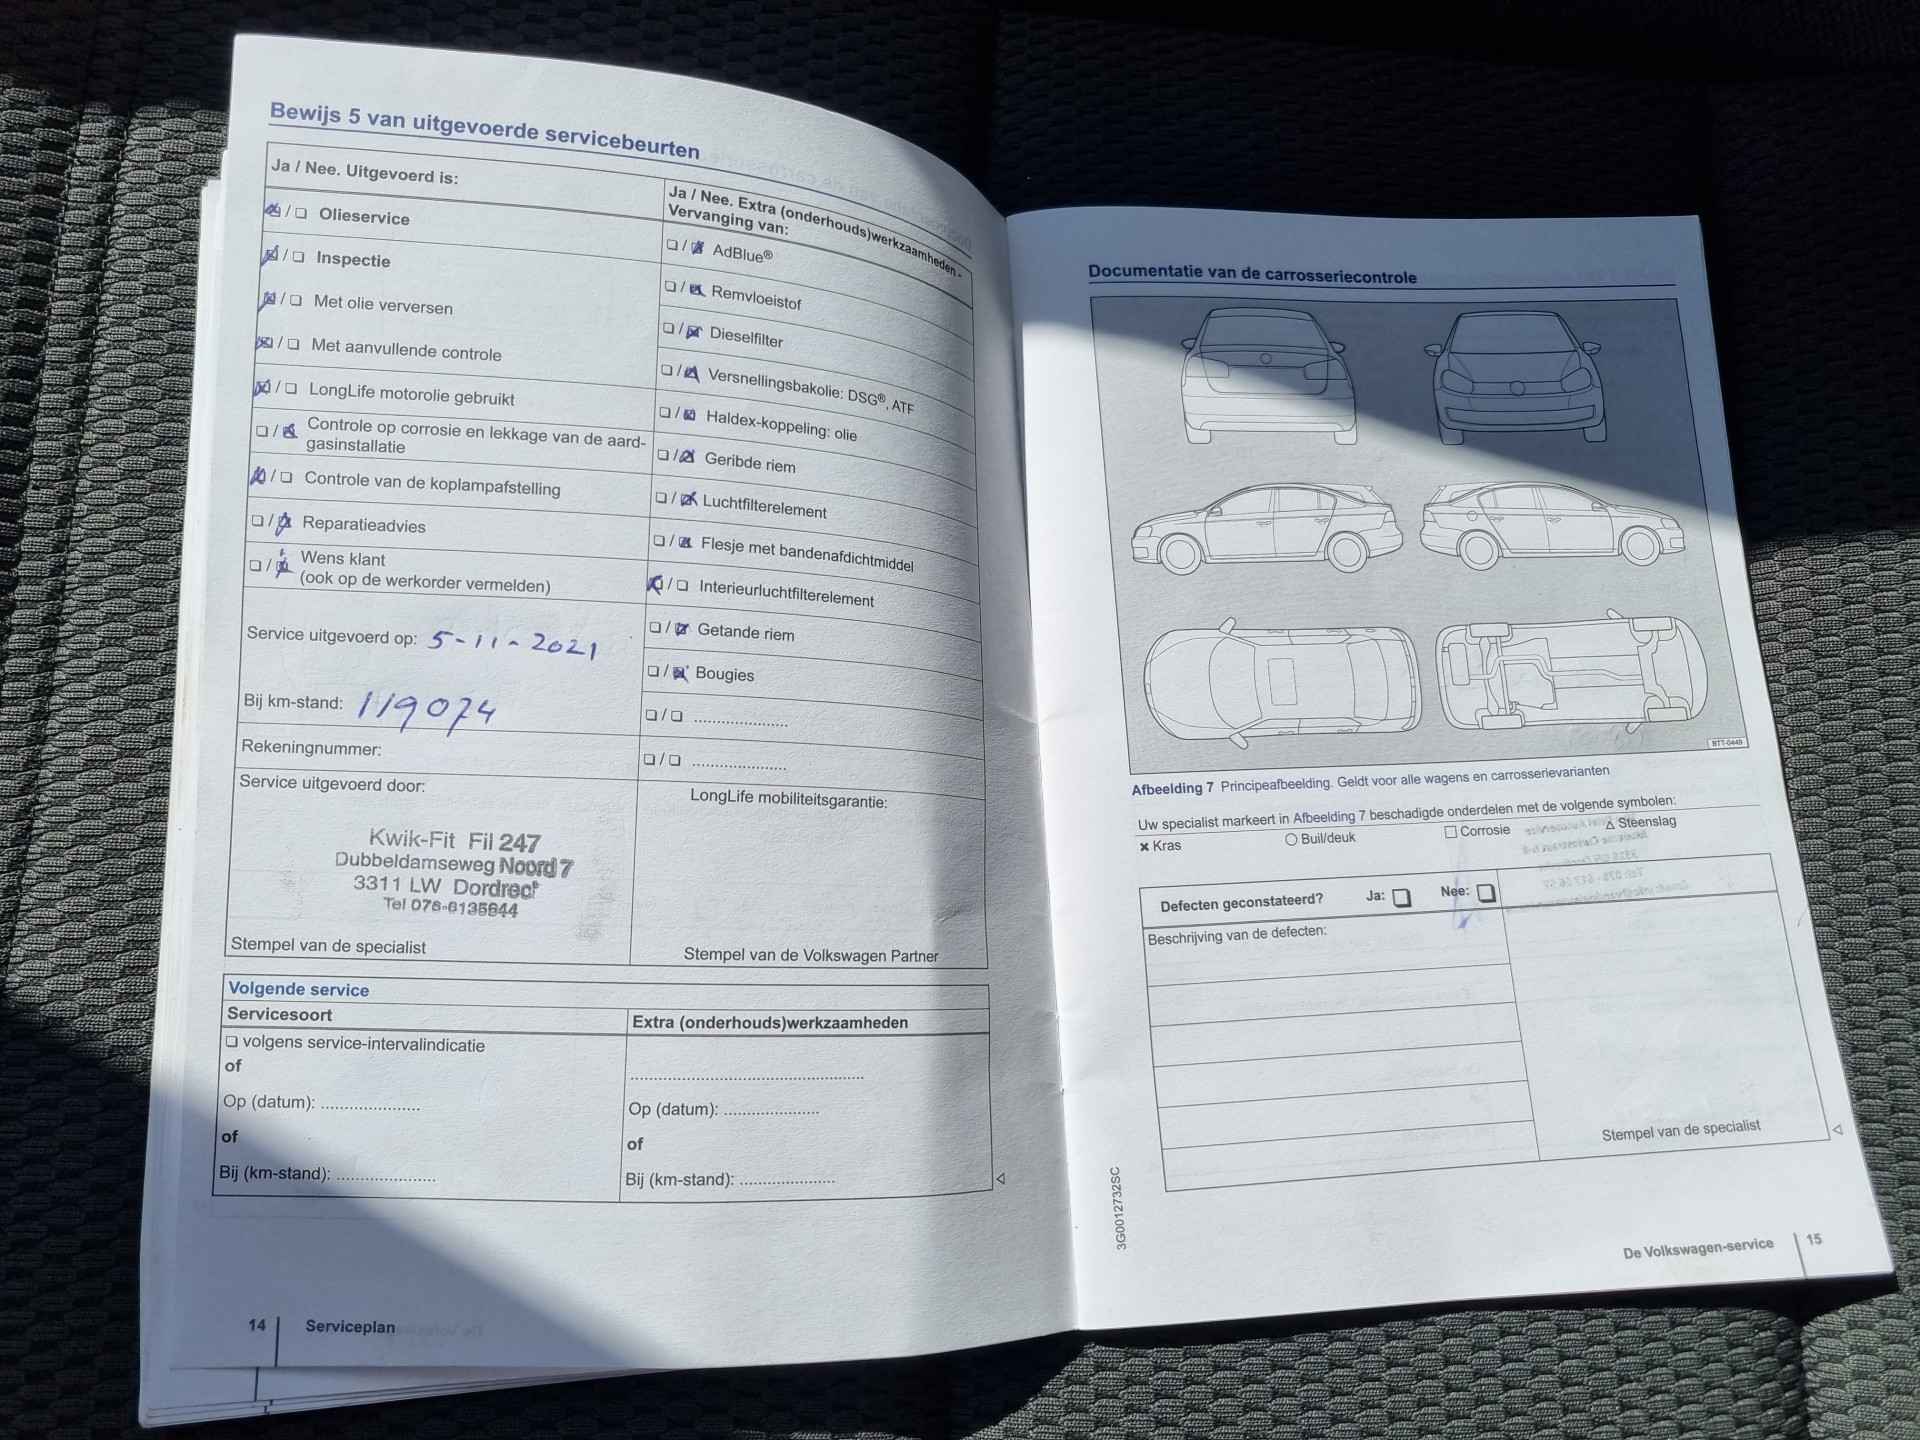 Bewijs 5 van uitgevoerde servicebeurten
Ja / Nee. Uitgevoerd is:
/ Olieservice
/ Inspectie
/ Met olie verversen
/ Met aanvullende controle
/ LongLife motorolie gebruikt
/ Controle op corrosie en lekkage van de aard-
gasinstallatie
/ Controle van de koplampafstelling
/ Reparatieadvies
/ Wens klant
(ook op de werkorder vermelden)
Service uitgevoerd op: 5-11-2021
Bij km-stand: 119074
Rekeningnummer:
Service uitgevoerd door:
Kwik-Fit Fil 247
Dubbeldamseweg Noord 7
3311 LW Dordrecht
Tel 078-6135644
Stempel van de specialist
Ja / Nee. Extra (onderhouds)werkzaamheden -
Vervanging van:
/ AdBlue®
/ Remvloeistof
/ Dieselfilter
/ Versnellingsbakolie: DSG®, ATF
/ Haldex-koppeling: olie
/ Geribde riem
/ Luchtfilterelement
/ Flesje met bandenafdichtmiddel
/ Interieurluchtfilterelement
/ Getande riem
/ Bougies
/ .....................
/ .....................
LongLife mobiliteitsgarantie:
Stempel van de Volkswagen Partner
Volgende service
Servicesoort
volgens service-intervalindicatie
of
Op (datum): .....................
of
Bij (km-stand): .....................
Extra (onderhouds)werkzaamheden
..................................................
Op (datum): .....................
of
Bij (km-stand): .....................
14 Serviceplan
Documentatie van de carrosseriecontrole
BTT-0449
Afbeelding 7 Principeafbeelding. Geldt voor alle wagens en carrosserievarianten
Uw specialist markeert in Afbeelding 7 beschadigde onderdelen met de volgende symbolen:
Kras Buil/deuk Corrosie Steenslag
Defecten geconstateerd? Ja: Nee:
Beschrijving van de defecten:
Stempel van de specialist
3G0012732SC
De Volkswagen-service 15